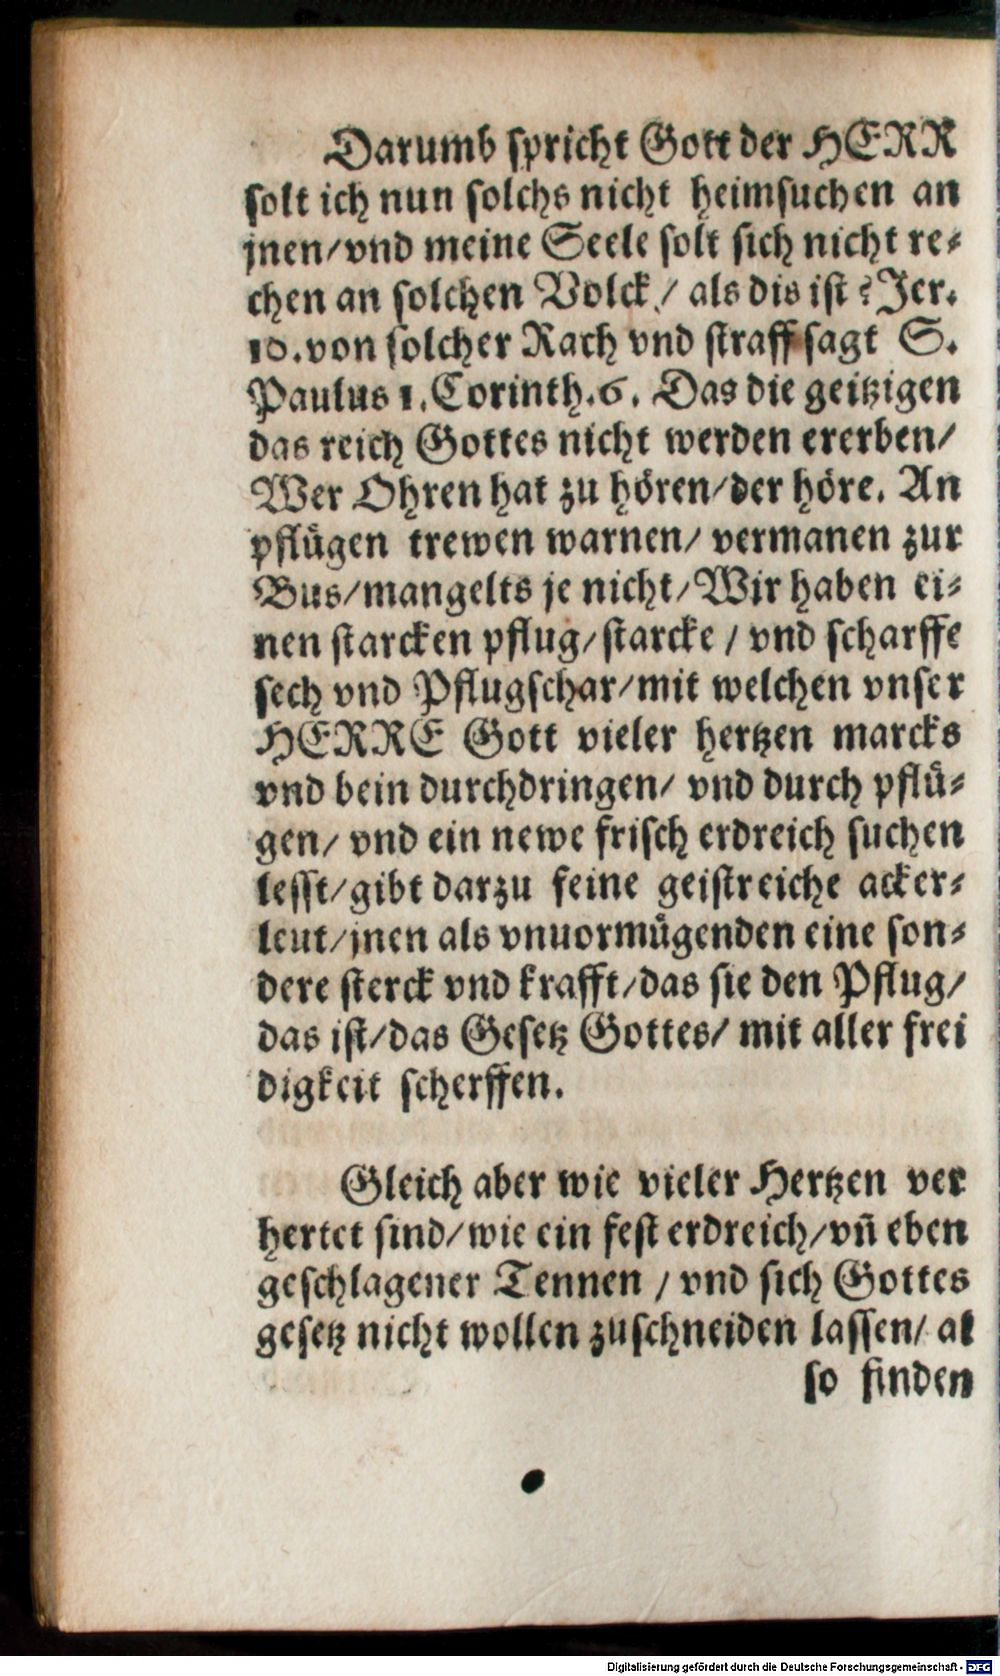 Darumb spricht Gott der HERR
solt ich nun solchs nicht heimsuchen an
jnen/vnd meine Seele solt sich nicht re⸗
chen an solchen Volck / als dis ist? Jer.
10. von solcher Rach vnd straff sagt S.
Paulus 1. Corinth. 6. Das die geitzigen
das reich Gottes nicht werden ererben/
Wer Ohren hat zu hören/der höre. An
pflügen trewen warnen/ vermanen zur
Bus/mangelts je nicht/Wir haben ei⸗
nen starcken pflug/starcke / vnd scharffe
sech vnd Pflugschar/mit welchen vnser
HERRE Gott vieler hertzen marcks
vnd bein durchdringen/ vnd durch pflü⸗
gen/ vnd ein newe frisch erdreich suchen
lesst/gibt darzu feine geistreiche acker⸗
leut/jnen als vnuormügenden eine son⸗
dere sterck vnd krafft/das sie den Pflug/
das ist/das Gesetz Gottes/ mit aller frei
digkeit scherffen.
Gleich aber wie vieler Hertzen ver
hertet sind/wie ein fest erdreich/vñ eben
geschlagener Tennen / vnd sich Gottes
gesetz nicht wollen zuschneiden lassen/ al
so finden
Digitalisierung gefördert durch die Deutsche Forschungsgemeinschaft - DFG